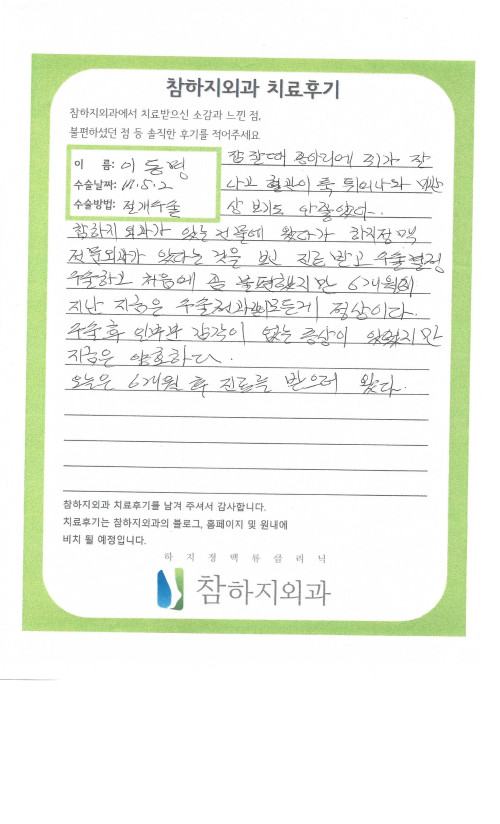 참하지외과 치료후기
참하지외과에서 치료받으신 소감과 느낀 점,
불편하셨던 점 등 솔직한 후기를 적어주세요
이 름: 이동평
수술날짜: 17.5.2
수술방법: 절개수술
잠잘때 종아리에 쥐가 잘
나고 혈관이 툭 튀어나와 미관
상 보기도 안좋았다.
참하지외과가 있는 건물에 왔다가 하지정맥
전문외과가 있다는 것을 보고 진료 받고 수술결정
수술하고 처음에 좀 불편했지만 6개월이
지난 지금은 수술결과 모든게 정상이다.
수술후 감각이 없는 증상이 있었지만
지금은 양호하다.
오늘은 6개월 후 진료를 받으러 왔다.
참하지외과 치료후기를 남겨 주셔서 감사합니다.
치료후기는 참하지외과의 블로그, 홈페이지 및 원내에
비치 될 예정입니다.
하지정맥류클리닉
참하지외과